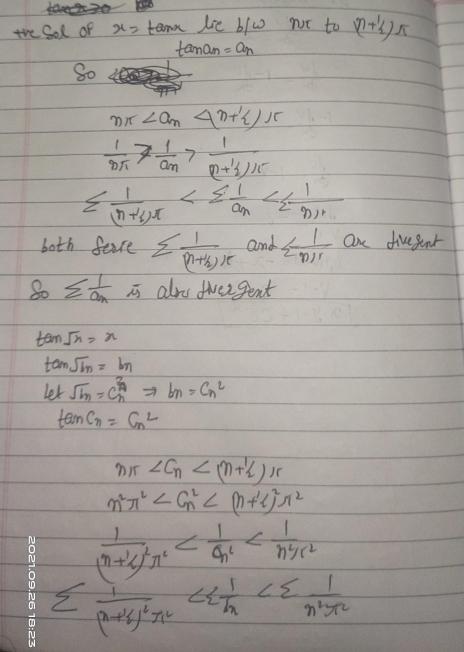 +ve Sol of x = tanx lie b/w nπ to (n+½)π
tan an = an
So
nπ < an < (n+½)π
1/nπ > 1/an > 1/(n+½)π
Σ 1/(n+½)π < Σ 1/an < Σ 1/nπ
both Serie Σ 1/(n+½)π and Σ 1/nπ are divergent
So Σ 1/an is also divergent
tan√x = x
tan√bn = bn
let √bn = Cn ⇒ bn = Cn²
tan Cn = Cn²
nπ < Cn < (n+½)π
n²π² < Cn² < (n+½)²π²
1/(n+½)²π² < 1/Cn² < 1/n²π²
Σ 1/(n+½)²π² < Σ 1/bn < Σ 1/n²π²
2021.09.26 18:23